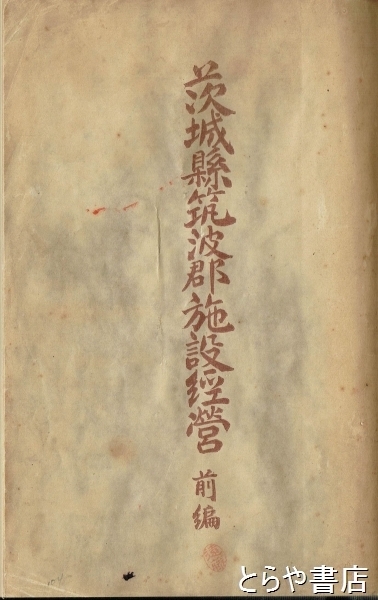 茨城縣筑波郡施設經營 前編
とらや書店